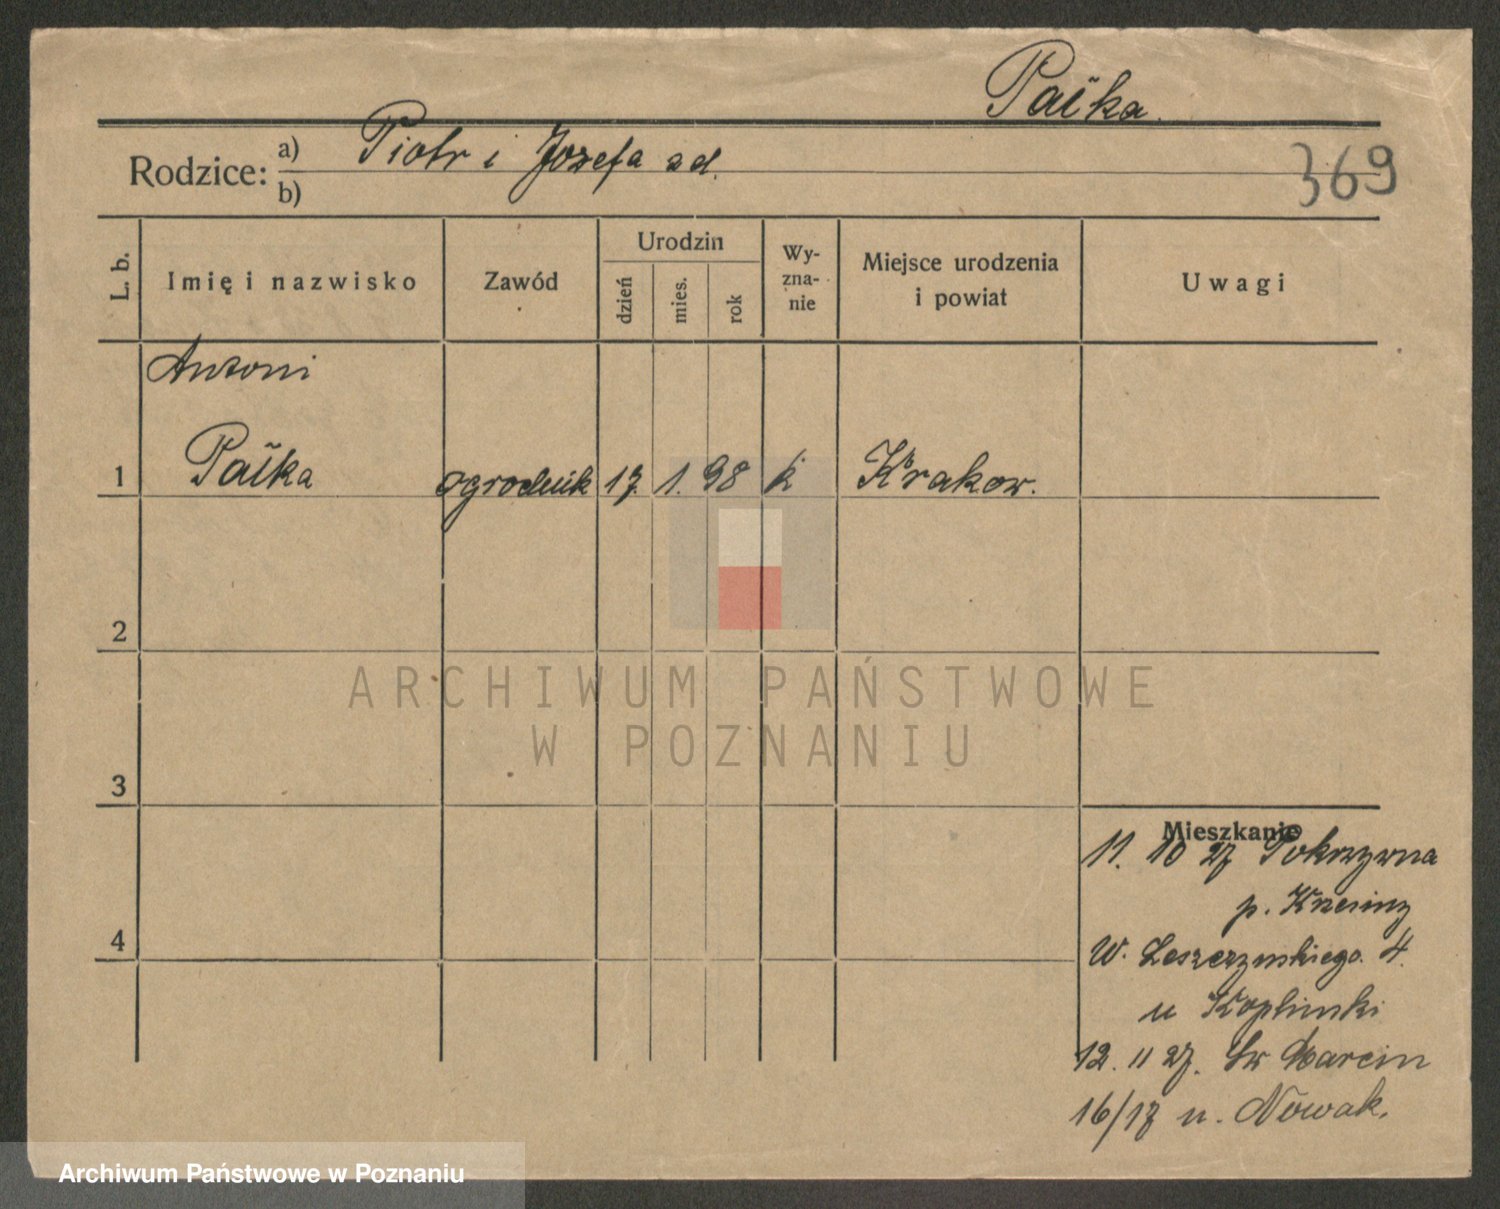 Paika.
Rodzice: a) Piotr i Jozefa zd.
b)
369
L. b.
Imię i nazwisko
Zawód
Urodzin
dzień
mies.
rok
Wy-
zna-
nie
Miejsce urodzenia
i powiat
Uwagi
Antoni
1 Paika ogrodnik 17. 1. 98 k Krakow.
2
ARCHIWUM PAŃSTWOWE
W POZNANIU
3
Mieszkanie
11. 10 27 Pokrzywna
p. Krzesiny
4
W. Leszczynskiego. 4.
u
12. 11 27. Sw Marcin
16/17 u. Nowak.
Archiwum Państwowe w Poznaniu